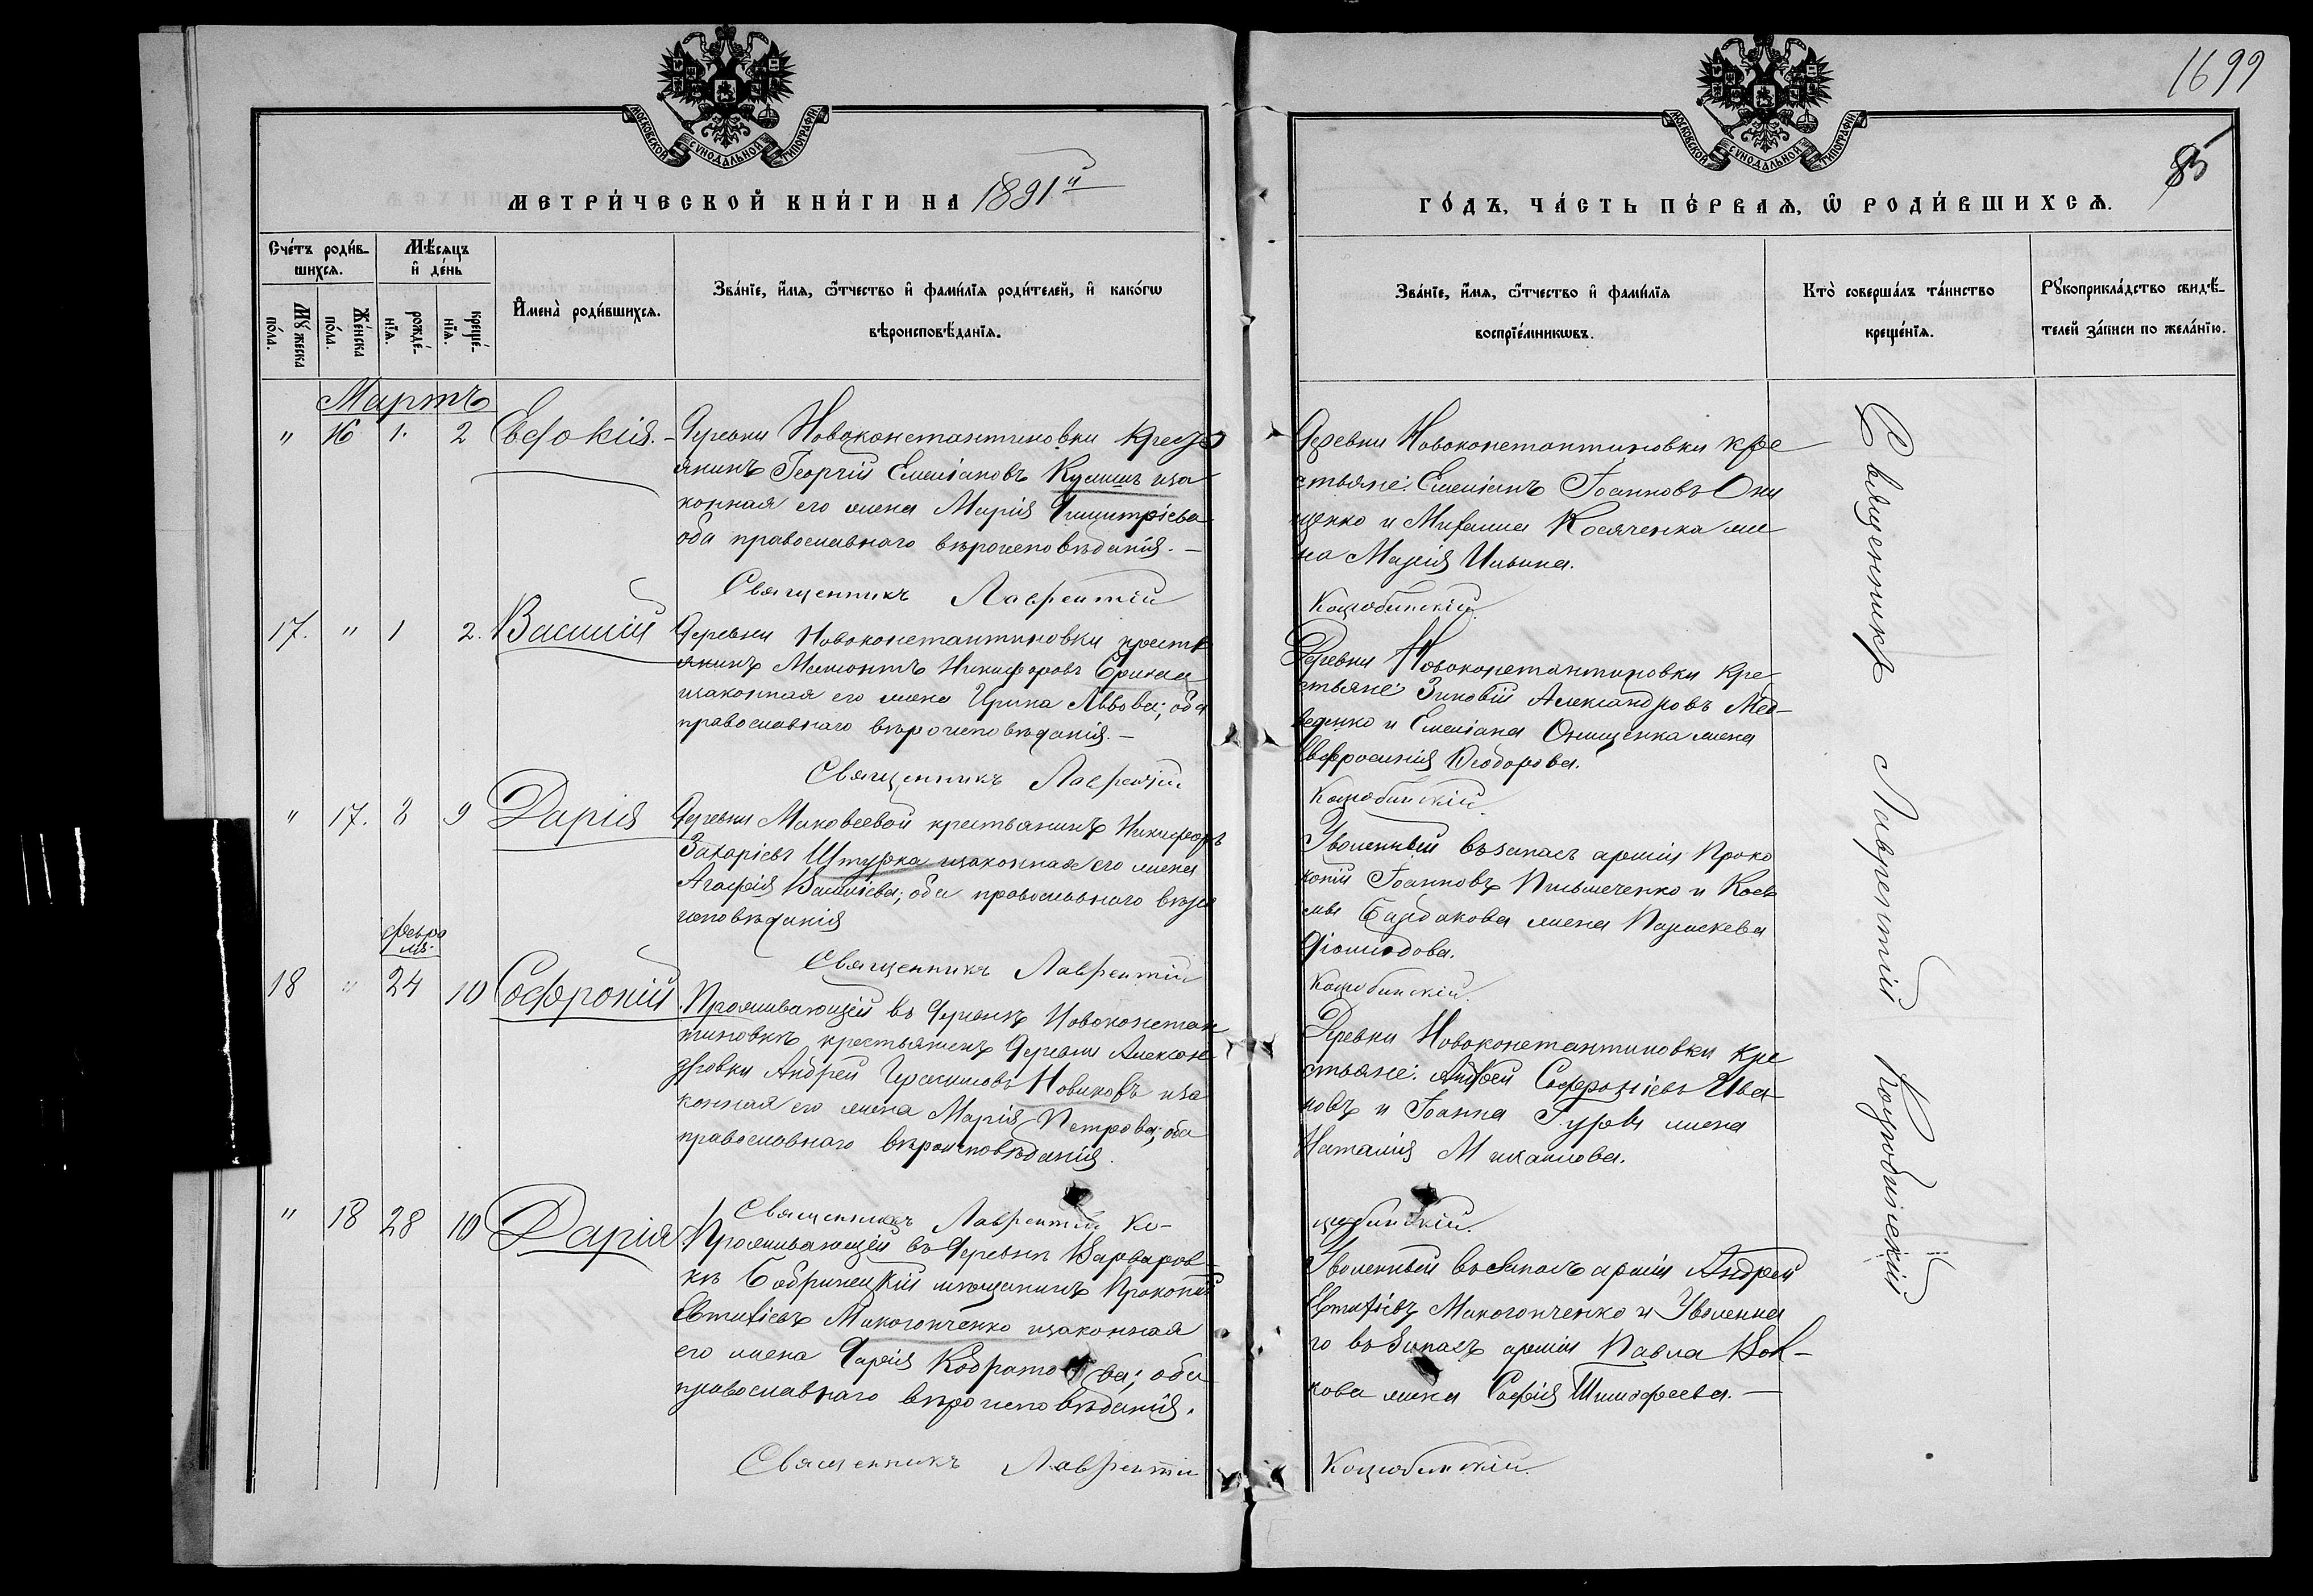 1699
85
МОСКОВСКОЙ СѴНОДАЛЬНОЙ ТИПОГРАФІИ
МОСКОВСКОЙ СѴНОДАЛЬНОЙ ТИПОГРАФІИ
МЕТРИ́ЧЕСКОЙ КНИ́ГИ НА 1891й
ГО́ДЪ, ЧА́СТЬ ПЕ́РВАѦ, Ѿ РОДИ́ВШИХСѦ.
Сче́тъ роди́в-
шихсѧ.
Мѣ́сѧцъ
и҆ де́нь
Мꙋ́жеска
по́ла.
Же́нска
по́ла.
рожде́-
нїѧ.
креще́-
нїѧ.
И҆мена̀ роди́вшихсѧ.
Зва́нїе, и҆́мѧ, ѻ҆́тчество и҆ фами́лїѧ роди́телей, и҆ како́гѡ
вѣроисповѣ́данїѧ.
Зва́нїе, и҆́мѧ, ѻ҆́тчество и҆ фами́лїѧ
воспрїе́мникѡвъ.
Кто̀ соверша́лъ та́инство
креще́нїѧ.
Рꙋкоприкла́дство свидѣ́-
телей за́писи по жела́нїю.
Мартъ
" 16 1. 2 Евдокія.
Деревни Новоконстантиновки крест
янинъ Георгій Емеліановъ иза
конная его жена Марія Димитріева
оба православнаго вѣроисповѣданія.—
Священникъ Лаврентій
Деревни Новоконстантиновки кре
стьяне: Емеліанъ Іоанновъ Они
щенко и Михаила Косяченка же
на Марія Ильина.
Коцюбинскій
17. " 1 2. Василій
Деревни Новоконстантиновки кресть
янинъ Мамонтъ Никифоровъ
изаконная его жена Ирина Львова; оба
православнаго вѣроисповѣданія.—
Священникъ Лаврентій
Деревни Новоконстантиновки кре-
стьяне: Зиновій Александровъ Мед-
веденко и Емеліана Онищенка жена
Евфросинія Ѳеодорова.
Коцюбинскій
" 17. 8 9 Дарія
Деревни Маковеевой крестьянинъ Никифоръ
Захаріевъ Штурка изаконная его жена
Агафія Василіева; оба православнаго вѣро
исповѣданія
Священникъ Лаврентій
Уволенный въ запасъ арміи Проко
копій Іоанновъ Письмеченко и Кось
мы Бардакова жена Параскева
Діомидова.
Коцюбинскій.
Февра
ля.
18 " 24 10 Софроній
Проживающій въ деревнѣ Новоконстан
тиновкѣ крестьянинъ деревни Алексан
дровки Андрей Герасимовъ Новиковъ иза
конная его жена Марія Петрова; оба
православнаго вѣроисповѣданія.
Священникъ Лаврентій Ко-
Деревни Новоконстантиновки кре
стьяне: Софроніевъ Ива-
новъ и Іоанна жена
Наталія Михаилова.
цюбинскій.
" 18 28 10 Дарія
Проживающій въ деревнѣ Варваров-
кѣ Бобринецкій мѣщанинъ Прокопій
Евтихіевъ Макогонченко изаконная
его жена Дарія Кодратова; оба
православнаго вѣроисповѣданія.
Священникъ Лаврентій
Уволенный въ запасъ арміи Андрей
Евтихіевъ Макогонченко и Уволенна
го въ запасъ арміи Павла Вол-
кова жена Софія Тимофеева.—
Коцюбинскій
Священникъ Лаврентій Коцюбинскій